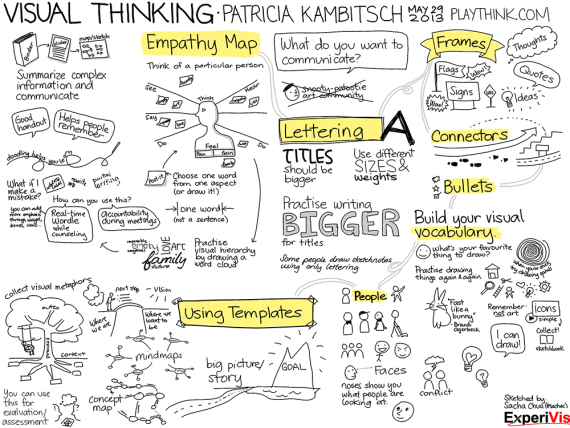 VISUAL THINKING · PATRICIA KAMBITSCH MAY 29 2013 PLAYTHINK.COM
map/sketch
Summarize complex
information and
communicate
Good
handout
Helps people
remember
doodling helps you
What if I
make a
mistake?
partial
lettering
you can add
How can you use this?
Real-time
Wordle
while
counseling
Accountability
during meetings
Empathy Map
Think of a particular person
See
Think
Hear
Say
Do
Feel
Pain
Gain
Post-it
Choose one word
from one aspect
(or draw it!)
one word
(not a sentence)
empty
LOVE
ART
family
Practise
visual hierarchy
by drawing a
word cloud
What do you want to
communicate?
snooty-patootie
art community
Lettering A
TITLES
should be
bigger
Use different
SIZES &
weights
Practise writing
BIGGER
for titles
Some people draw sketchnotes
using only lettering
Frames
Flags
Wow!
Signs
Wow!
Thoughts
Quotes
Ideas
Connectors
Bullets
Build your visual
vocabulary.
what's your favourite
thing to draw?
Practise drawing
things again & again
Fast
like a
bunny
Brandy
Agerbeck
Remember:
not art
I can
draw!
Icons
simple
Collect!
sketchbook
collect visual metaphors
outer
context
You can use
this for
evaluation/
assessment
next step
Vision
Where
we are
Where we
want to
be
mindmaps
concept
map
Using Templates
big picture/
story
GOAL
People
Faces
noses show you
what people are
looking at.
conflict
Sketched by
Sacha Chua (@sachac)
ExperiVis